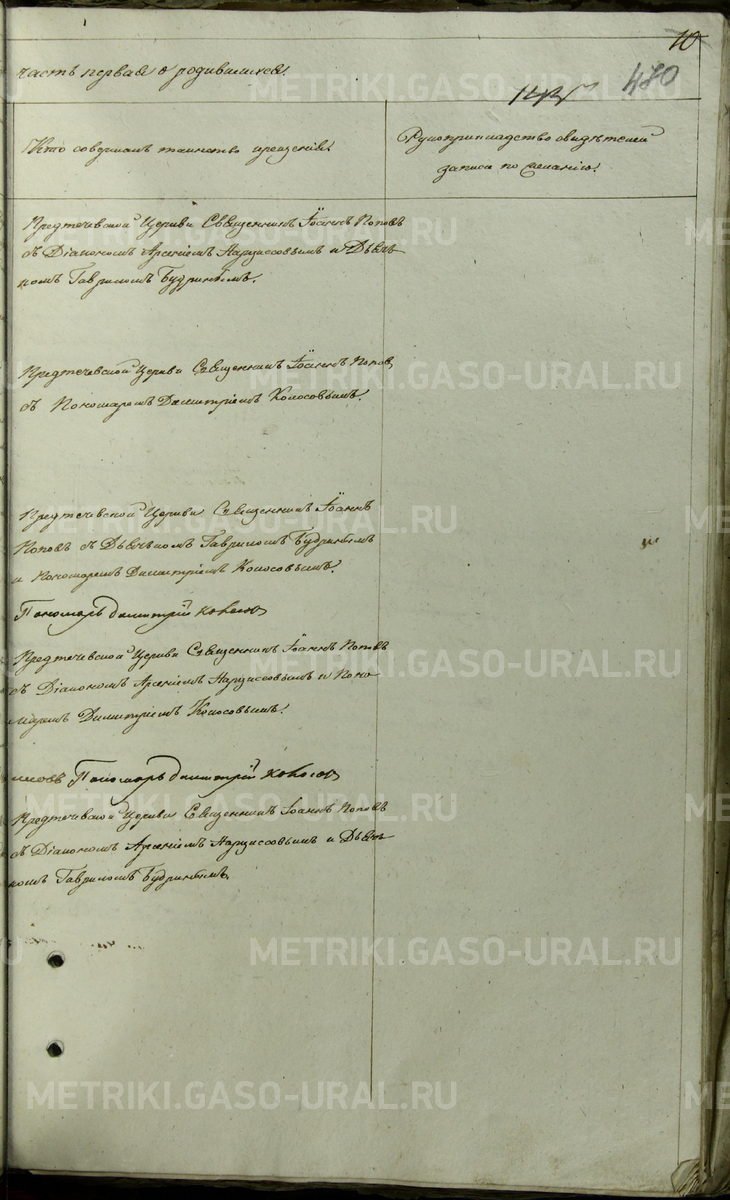 10
часть первая о родившихся.
470
Кто совершалъ таинство крещенія.
Рукоприкладство свидѣтелей
записи по желанію.
Предтечевской Церкви Священникъ Іоаннъ Поповъ
съ Діакономъ Арсеніемъ Нарциссовымъ и Дьяч-
комъ Гавриломъ
Предтечевской Церкви Священникъ Іоаннъ Попов
съ Пономаремъ Димитріемъ Колосовымъ.
Предтечевской Церкви Священникъ Іоаннъ
Поповъ съ Дьячкомъ Гавриломъ
и Пономаремъ Димитріемъ Колосовымъ.
Пономарь Димитрій Колосов
Предтечевской Церкви Священникъ Іоаннъ Поповъ
съ Діакономъ Арсеніемъ Нарциссовымъ и Поно-
маремъ Димитріемъ Колосовымъ.
Пономарь Димитрій Колосов
Предтечевской Церкви Священникъ Іоаннъ Поповъ
съ Діакономъ Арсеніемъ Нарциссовымъ и Дьяч-
комъ Гавриломъ
METRIKI.GASO-URAL.RU
METRIKI.GASO-URAL.RU
METRIKI.GASO-URAL.RU
METRIKI.GASO-URAL.RU
METRIKI.GASO-URAL.RU
METRIKI.GASO-URAL.RU
METRIKI.GASO-URAL.RU
METRIKI.GASO-URAL.RU